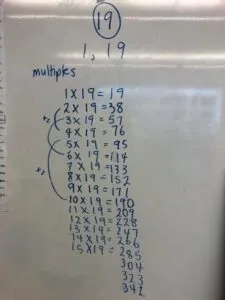 19
1, 19
multiples
1 X 19 = 19
2 X 19 = 38
3 X 19 = 57
4 X 19 = 76
5 X 19 = 95
6 X 19 = 114
7 X 19 = 133
8 X 19 = 152
9 X 19 = 171
10 X 19 = 190
11 X 19 = 209
12 X 19 = 228
13 X 19 = 247
14 X 19 = 266
15 X 19 = 285
304
323
342